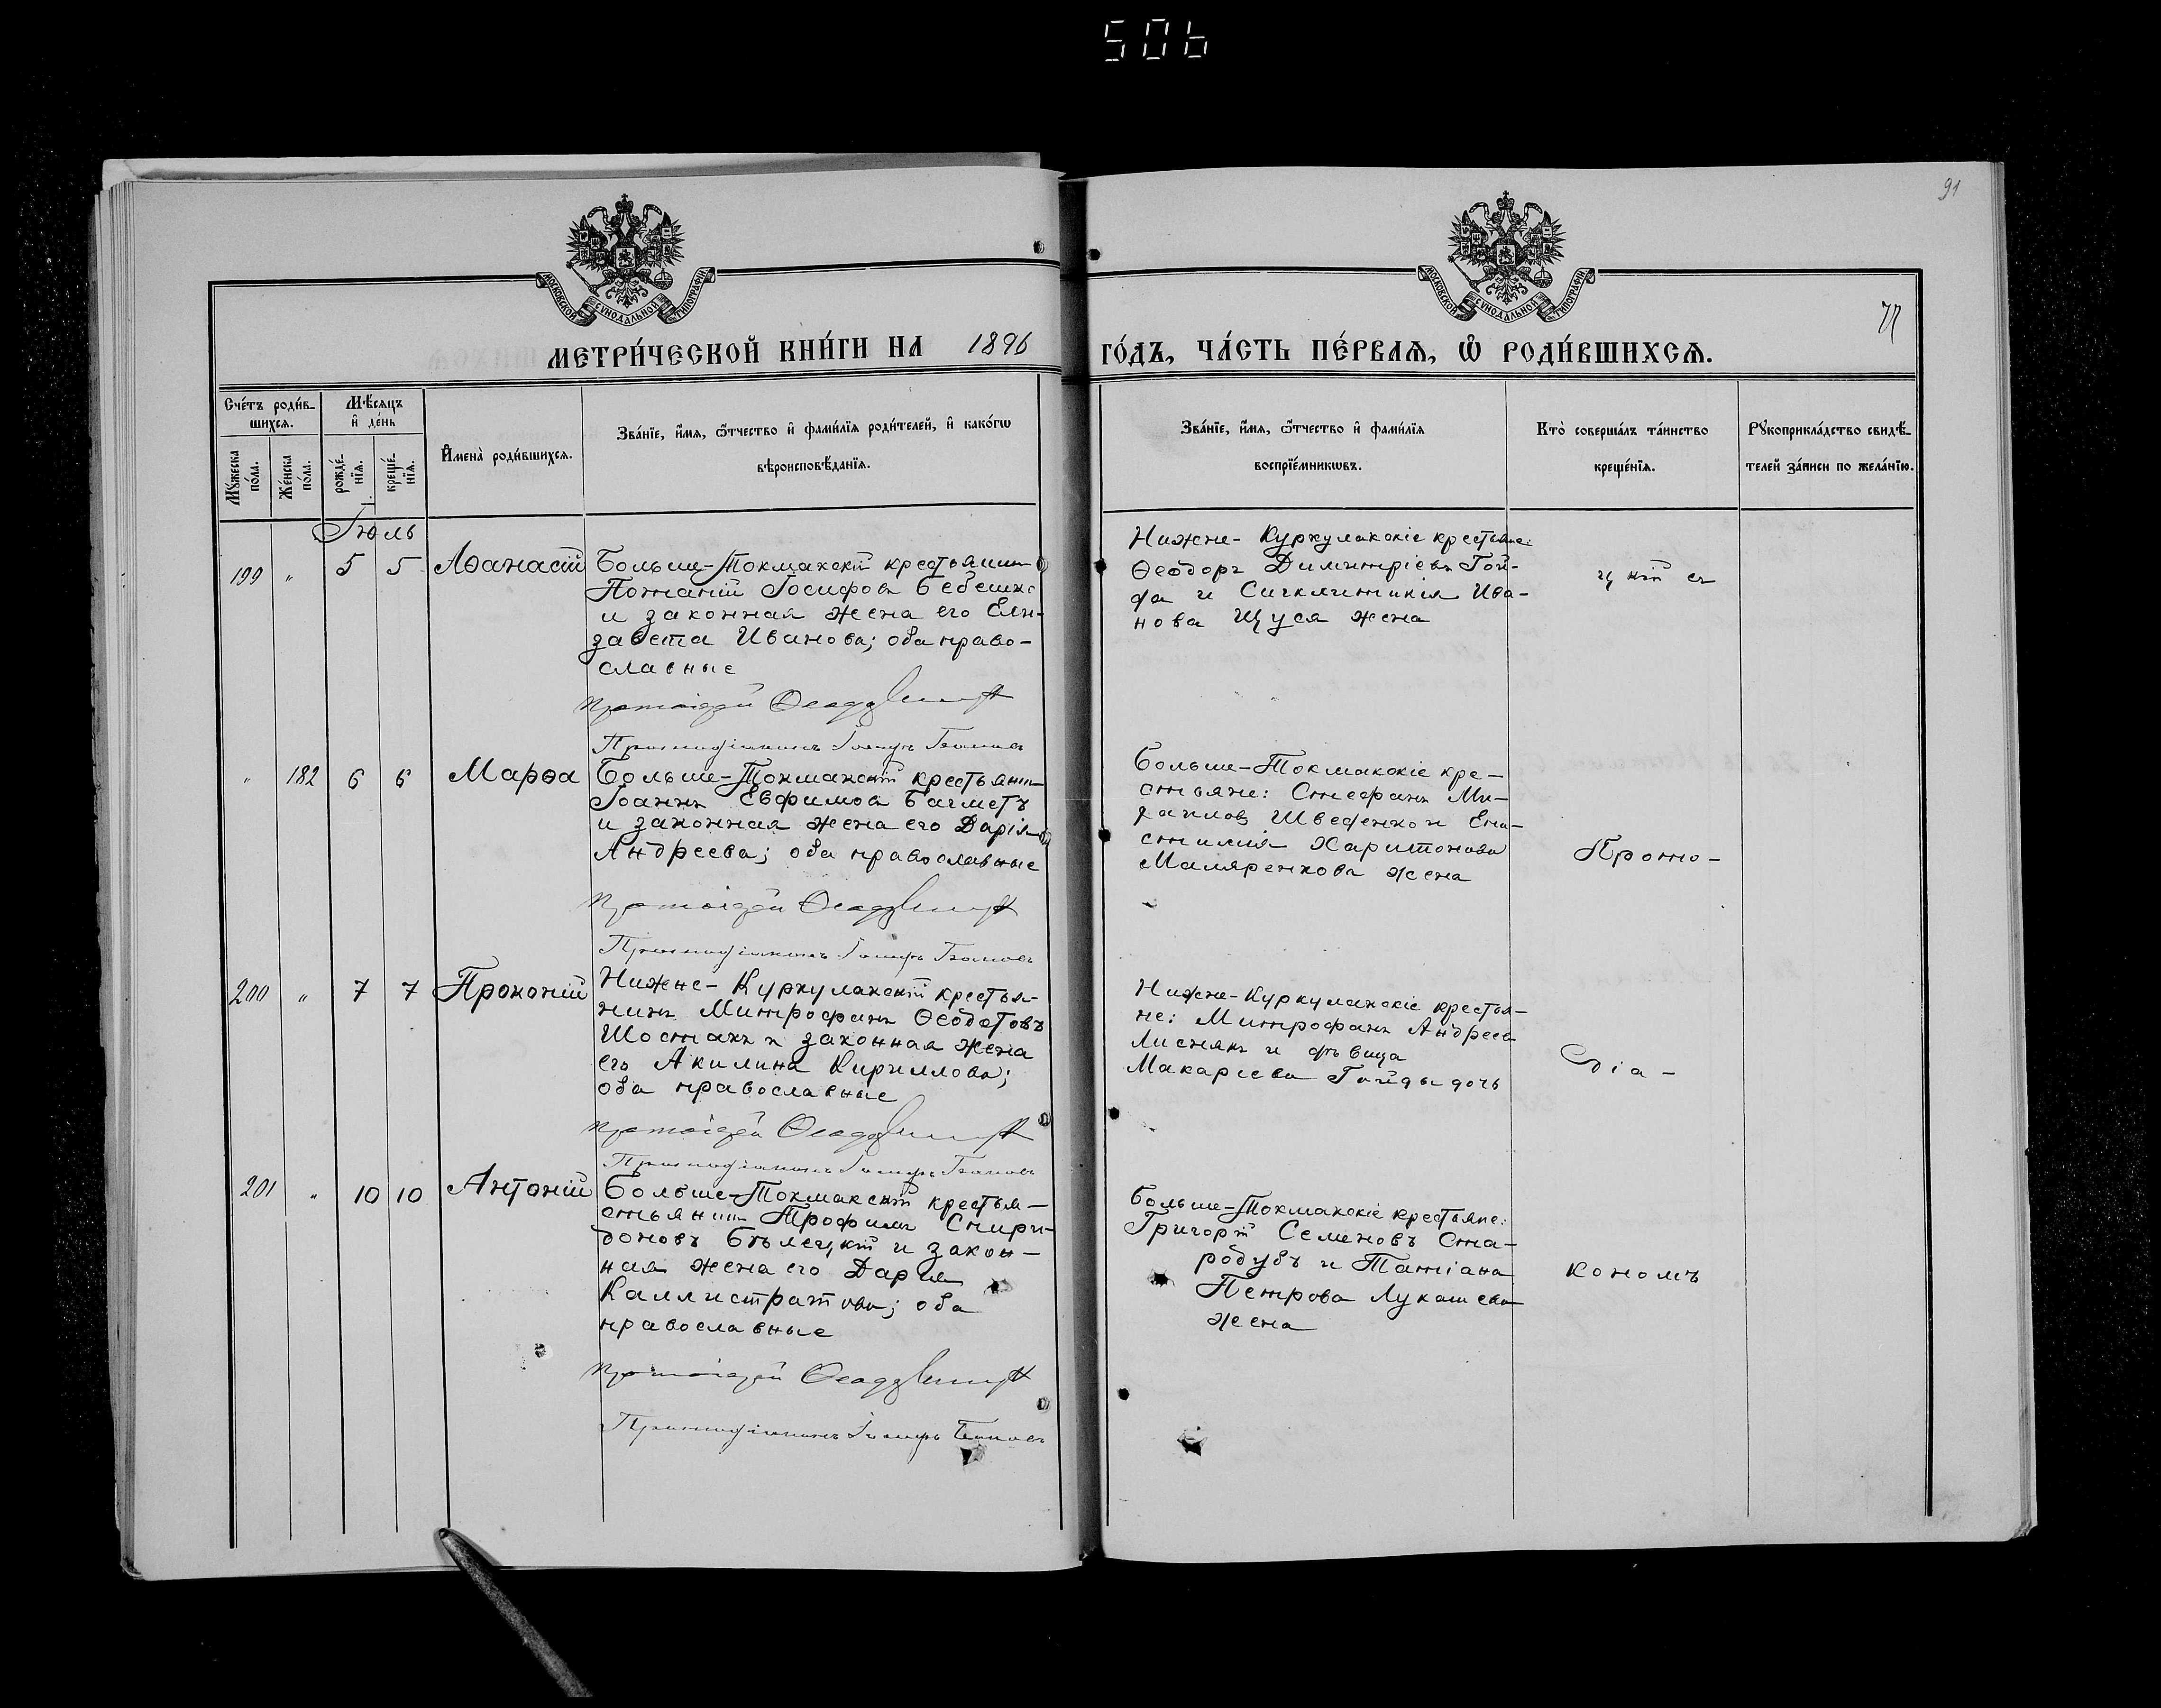 506
91
77
МОСКОВСКОЙ СѴНОДАЛЬНОЙ ТИПОГРАФІИ
МОСКОВСКОЙ СѴНОДАЛЬНОЙ ТИПОГРАФІИ
МЕТРИ́ЧЕСКОЙ КНИ́ГИ НА 1896
ГО́ДЪ, ЧА́СТЬ ПЕ́РВАѦ, Ѽ РОДИ́ВШИХСѦ.
Сче́тъ роди́в-
шихсѧ.
Мѣ́сѧцъ
и҆ де́нь
Мꙋ́жеска
по́ла.
Же́нска
по́ла.
рожде́-
нїѧ.
креще́-
нїѧ.
И҆мена̀ роди́вшихсѧ.
Зва́нїе, и҆́мѧ, ѻ҆́тчество и҆ фами́лїѧ роди́телей, и҆ како́гѡ
вѣроисповѣ́данїѧ.
Зва́нїе, и҆́мѧ, ѻ҆́тчество и҆ фами́лїѧ
воспрїе́мникѡвъ.
Кто̀ соверша́лъ та́инство
креще́нїѧ.
Рꙋкоприкла́дство свидѣ́-
телей за́писи по жела́нїю.
Іюль
199 " 5 5 Аѳанасій
Больше-Токмакскій крестьянинъ
Іосифовъ
и законная жена его Ели-
завета Иванова; оба право-
славные
Протоіерей
Протодіаконъ Іосифъ
Нижне-Куркулакскіе крестьяне:
Ѳеодоръ Димитріевъ Гой-
да и Сигклитикія Ива-
нова Щуся жена
" 182 6 6 Марѳа
Больше-Токмакскій крестьянинъ
Іоаннъ Евфимовъ Багметъ
и законная жена его Дарія
Андреева; оба православные
Протоіерей
Протодіаконъ Іосифъ
Больше-Токмакскіе кре-
стьяне: Стефанъ Ми-
хаиловъ Шведенко и
Харитонова
Маляренкова жена
Прото-
200 " 7 7 Прокопій
Нижне-Куркулакскій крестья-
нинъ Митрофанъ Ѳеодотовъ
Шостакъ и законная жена
его Акилина Кириллова;
оба православные
Протоіерей
Протодіаконъ Іосифъ
Нижне-Куркулакскіе крестья-
не: Митрофанъ Андреевъ
Лиснякъ и дѣвица
Макаріева Гойды дочь
діа-
201 " 10 10 Антоній
Больше-Токмакскій крестья-
стьянинъ Трофимъ Спири-
доновъ Бѣлецкій и закон-
ная жена его Дарія
Каллистратова; оба
православные
Протоіерей
Протодіаконъ Іосифъ
Больше-Токмакскіе крестьяне:
Григорій Семеновъ Ста-
родубъ и Татіана
Петрова Лукашева
жена
кономъ